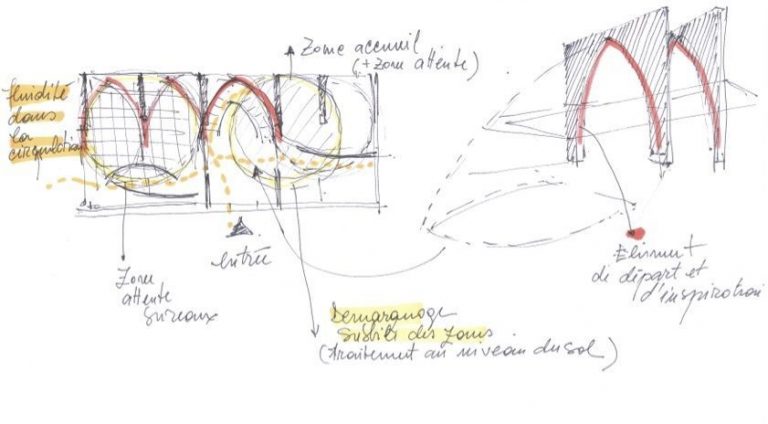 Zone accueil
(+ zone attente)
fluidité
dans
la
circulation
entrée
Zone
attente
Demarquage
subtile des zones
(traitement au niveau du sol)
Element
de départ et
d'inspiration